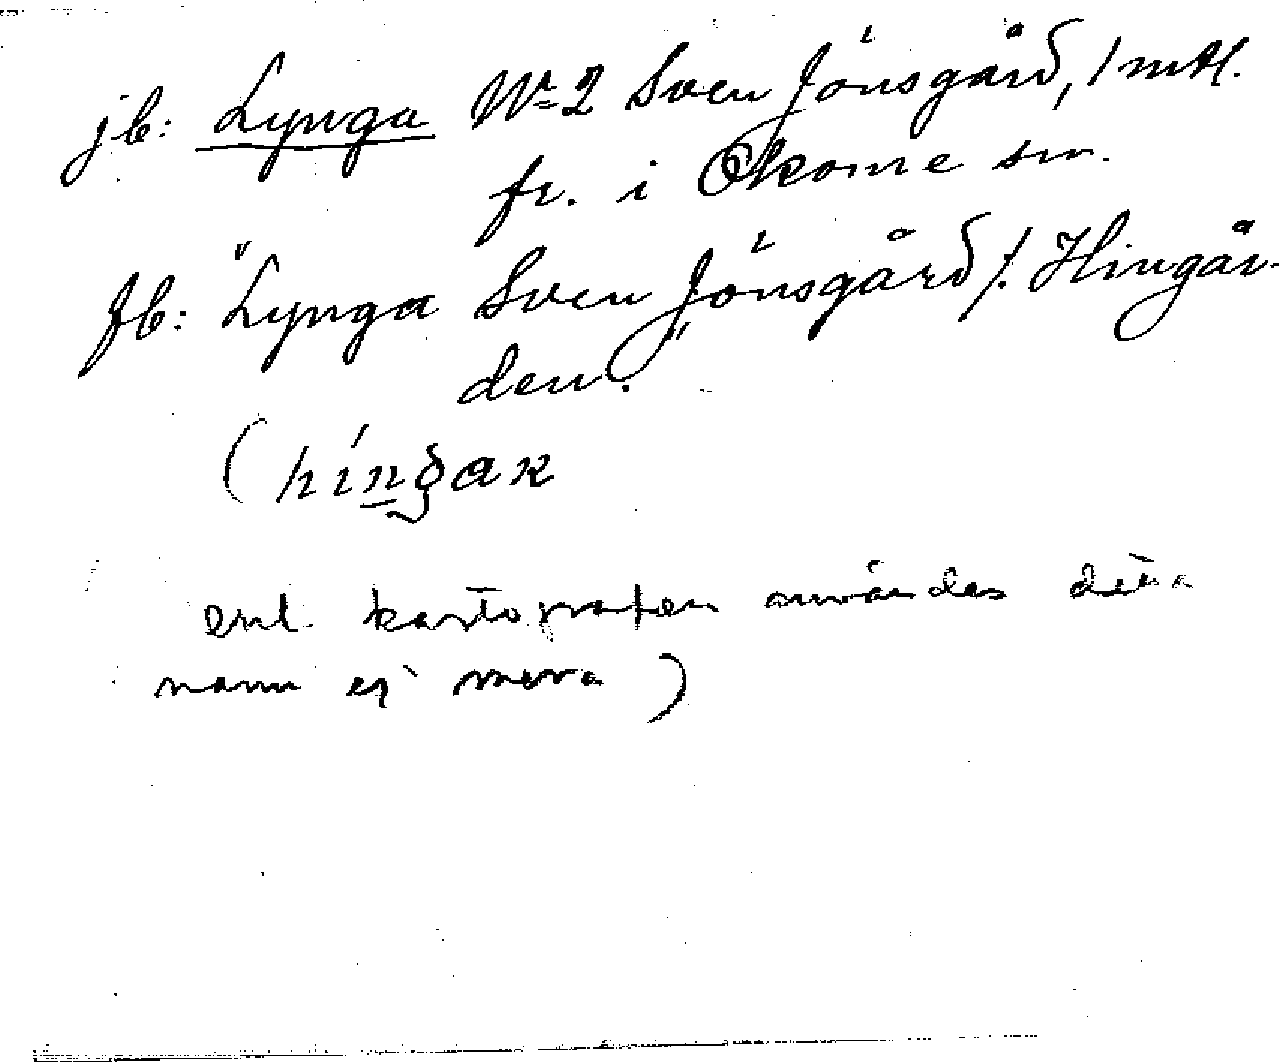 jb: Lynga Nr 2 Sven Jönsgård, 1 mtl.
fr. i Okome sn.
fb: "Lynga Sven Jönsgård" /. Hingår-
den.
(híngar
enl. kartografen användes detta
namn ej mera)